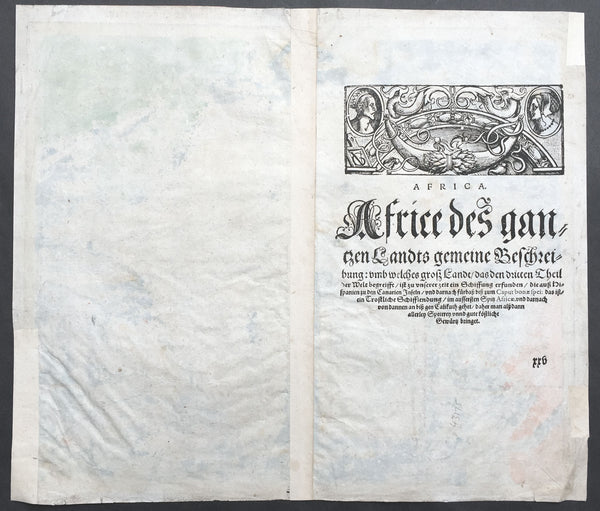 AFRICA.
Africe des gan⸗
tzen Landts gemeine Beschrei⸗
bung: vmb welches groß Landt / das den dritten Theil
der Welt begreifft / ist zu vnserer zeit ein Schiffung erfunden / die auß Hi⸗
spanien zu den Canarien Inseln / vnd darnach fürbaß biß zum Caput bonæ spei: das ist /
ein Trostliche Schifflendung / im aussersten Spitz Africæ, vnd darnach
von dannen an biß gen Calikuth gehet / daher man alßdann
allerley Specerey vnnd gute köstliche
Gewürtz bringet.
xxv